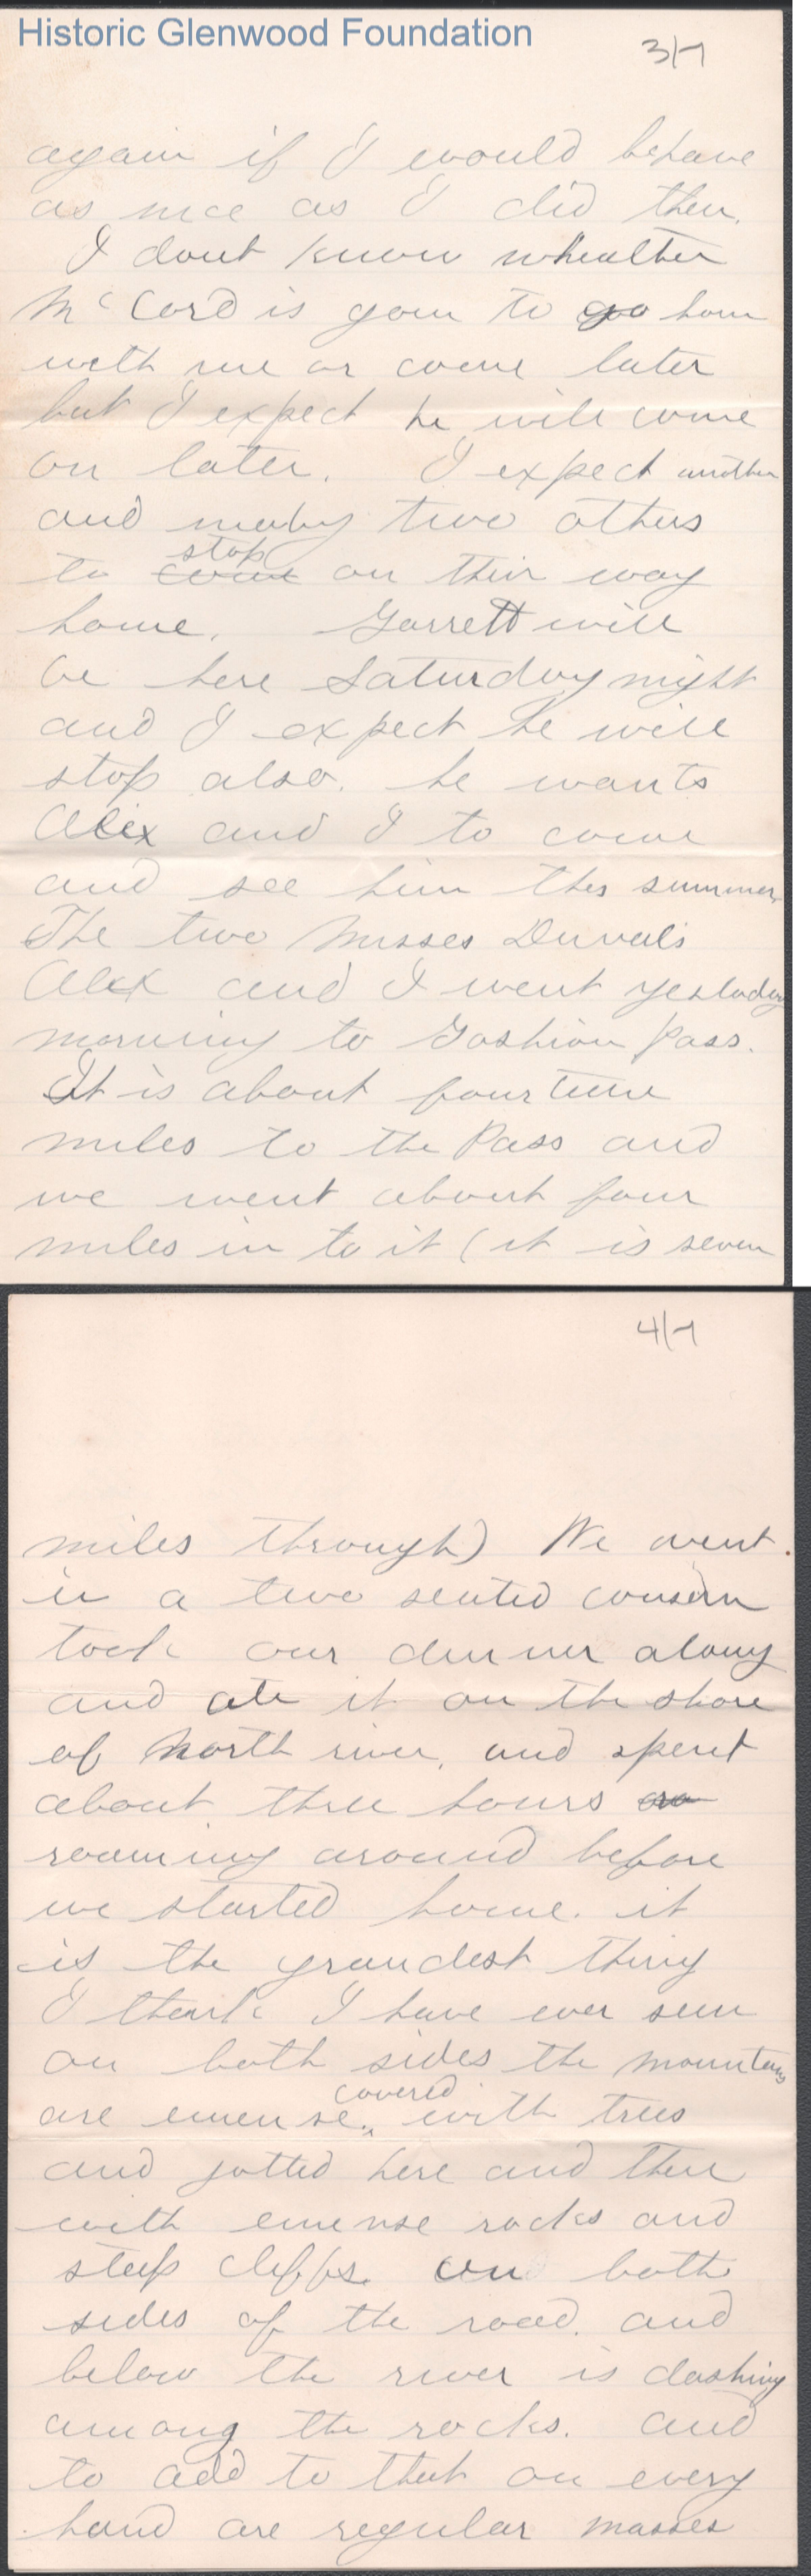 Historic Glenwood Foundation
3/7
again if I would behave
as nice as I did then.
I dont know whealther
McCord is goin to go hom
with me or come later
but I expect he will come
on later. I expect another
and maby two others
stop
to come on their way
home. Garrett will
be here Saturday night
and I expect he will
stop also. he wants
Alex and I to come
and see him this summer.
The two Misses Duvals
Alex and I went yestaday
morning to Goshion Pass.
It is about fourteen
miles to the Pass and
we went about four
miles in to it (it is seven
4/7
miles through) We went.
in a two seated
took our dinner along
and ate it on the shore
of North river, and spent
about three hours
roaming around before
we started home. it
is the grandest thing
I think I have ever seen
on both sides the mountans
covered
are emense. with trees
and jotted here and there
with emense rocks and
steep cliffs on both
sides of the road. and
below the river is dashing
among the rocks. and
to add to that on every
hand are regular masses